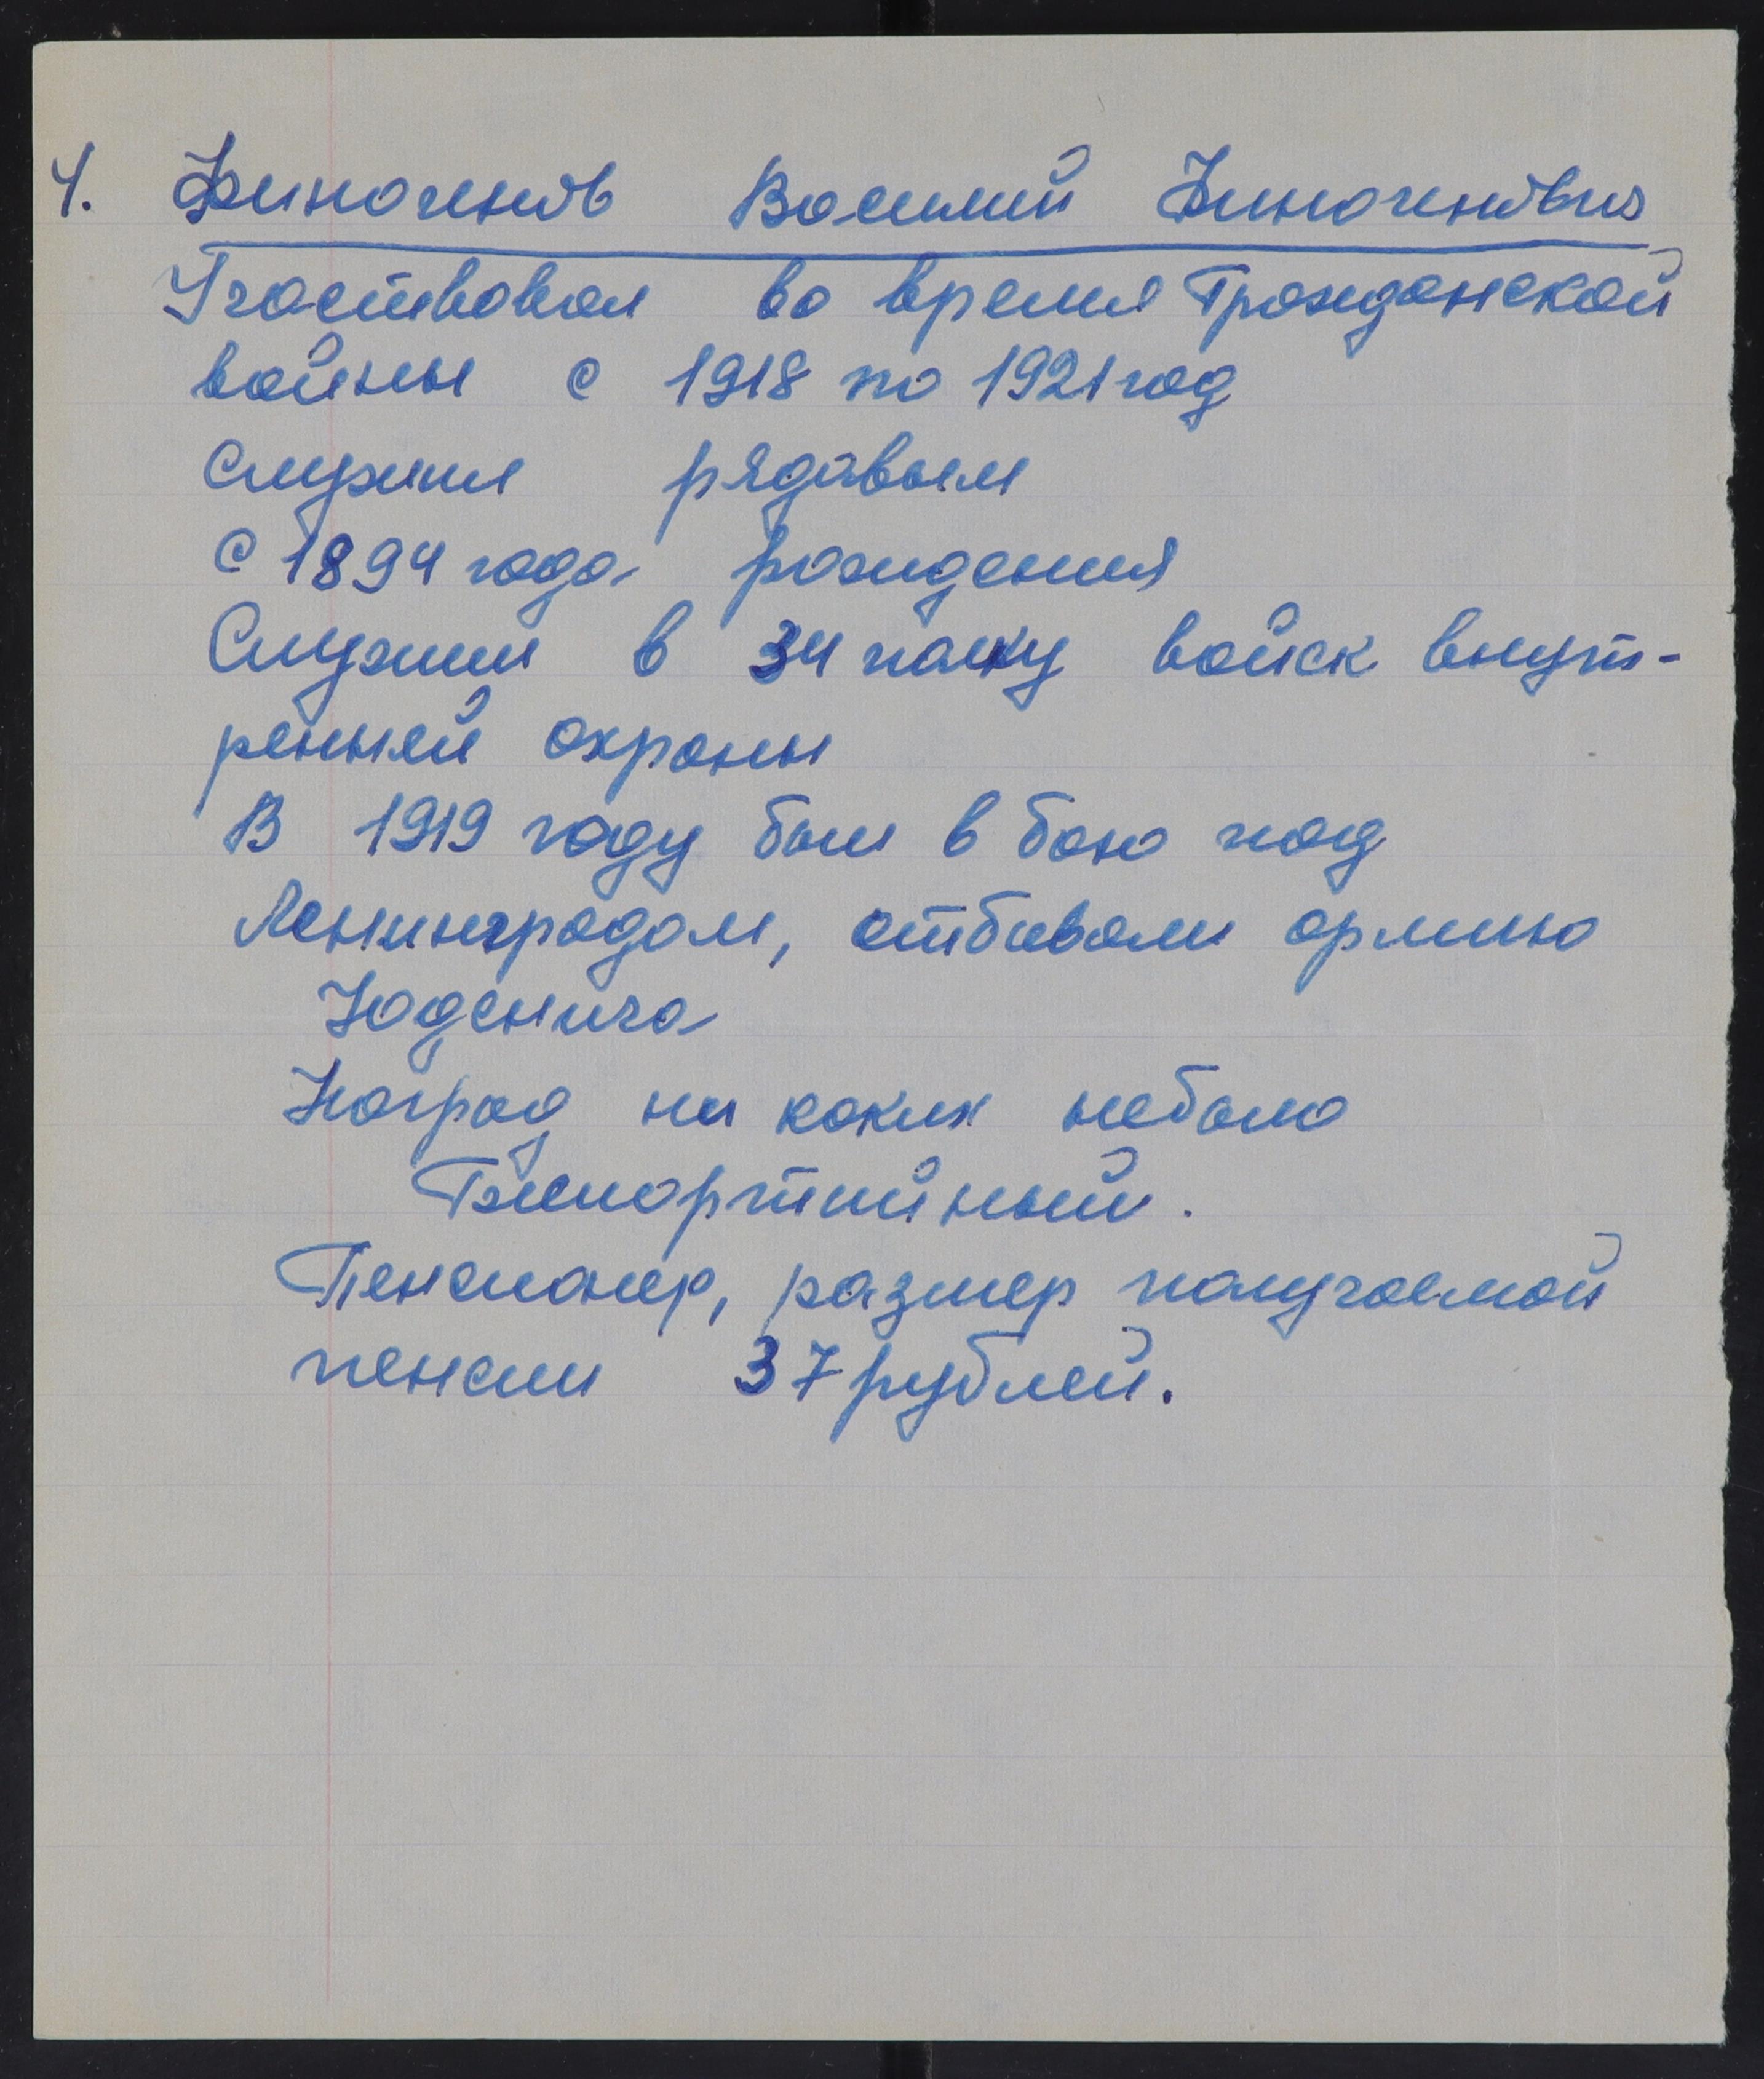 4. Финогенов Василий Финогенович
Участвовал во время Гражданской
войны с 1918 по 1921 год
Служил рядовым
С 1894 года рождения
Служил в 34 полку войск внут-
ренней охраны
В 1919 году был в бою под
Ленинградом, отбивали армию
Юденича
Наград ни каких небыло
Беспортийный.
Пенсионер, размер получаемой
пенсии 37 рублей.